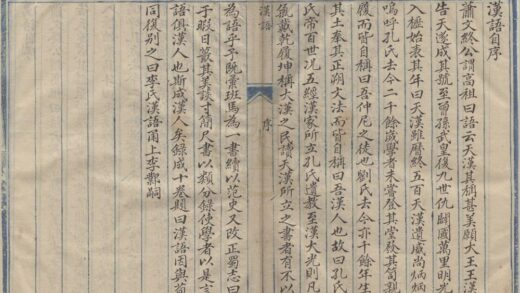 漢語自序
蕭文終公謂高祖曰語云天漢其稱甚美願大王王漢
告天遂成其號至曾孫武皇後九世仇闢國萬里明光
入櫪始表其年曰天漢雖曆終五百天漢遺威尚炳炳
嗚呼孔氏去今二千餘歲學者未嘗登其堂發其笥
履而皆自稱曰吾仲尼之徒也劉氏去今亦千餘年生
其土奉其正朔文法而皆自稱曰吾漢人也故曰孔氏
氏帝百世況五經漢家所立孔氏遺教至漢大光則凡
氣戴乾履坤稱大漢之民讀天漢所立之書者有不以
漢語 序
為語乎予既彙班馬為一書續以范史又改正蜀志曰
于暇日其美談寸簡尺書以類分錄使學者以是言
語俱漢人也斯成漢人矣錄成十卷題曰漢語因與荀
同復別之曰李氏漢語甬上李鄴嗣